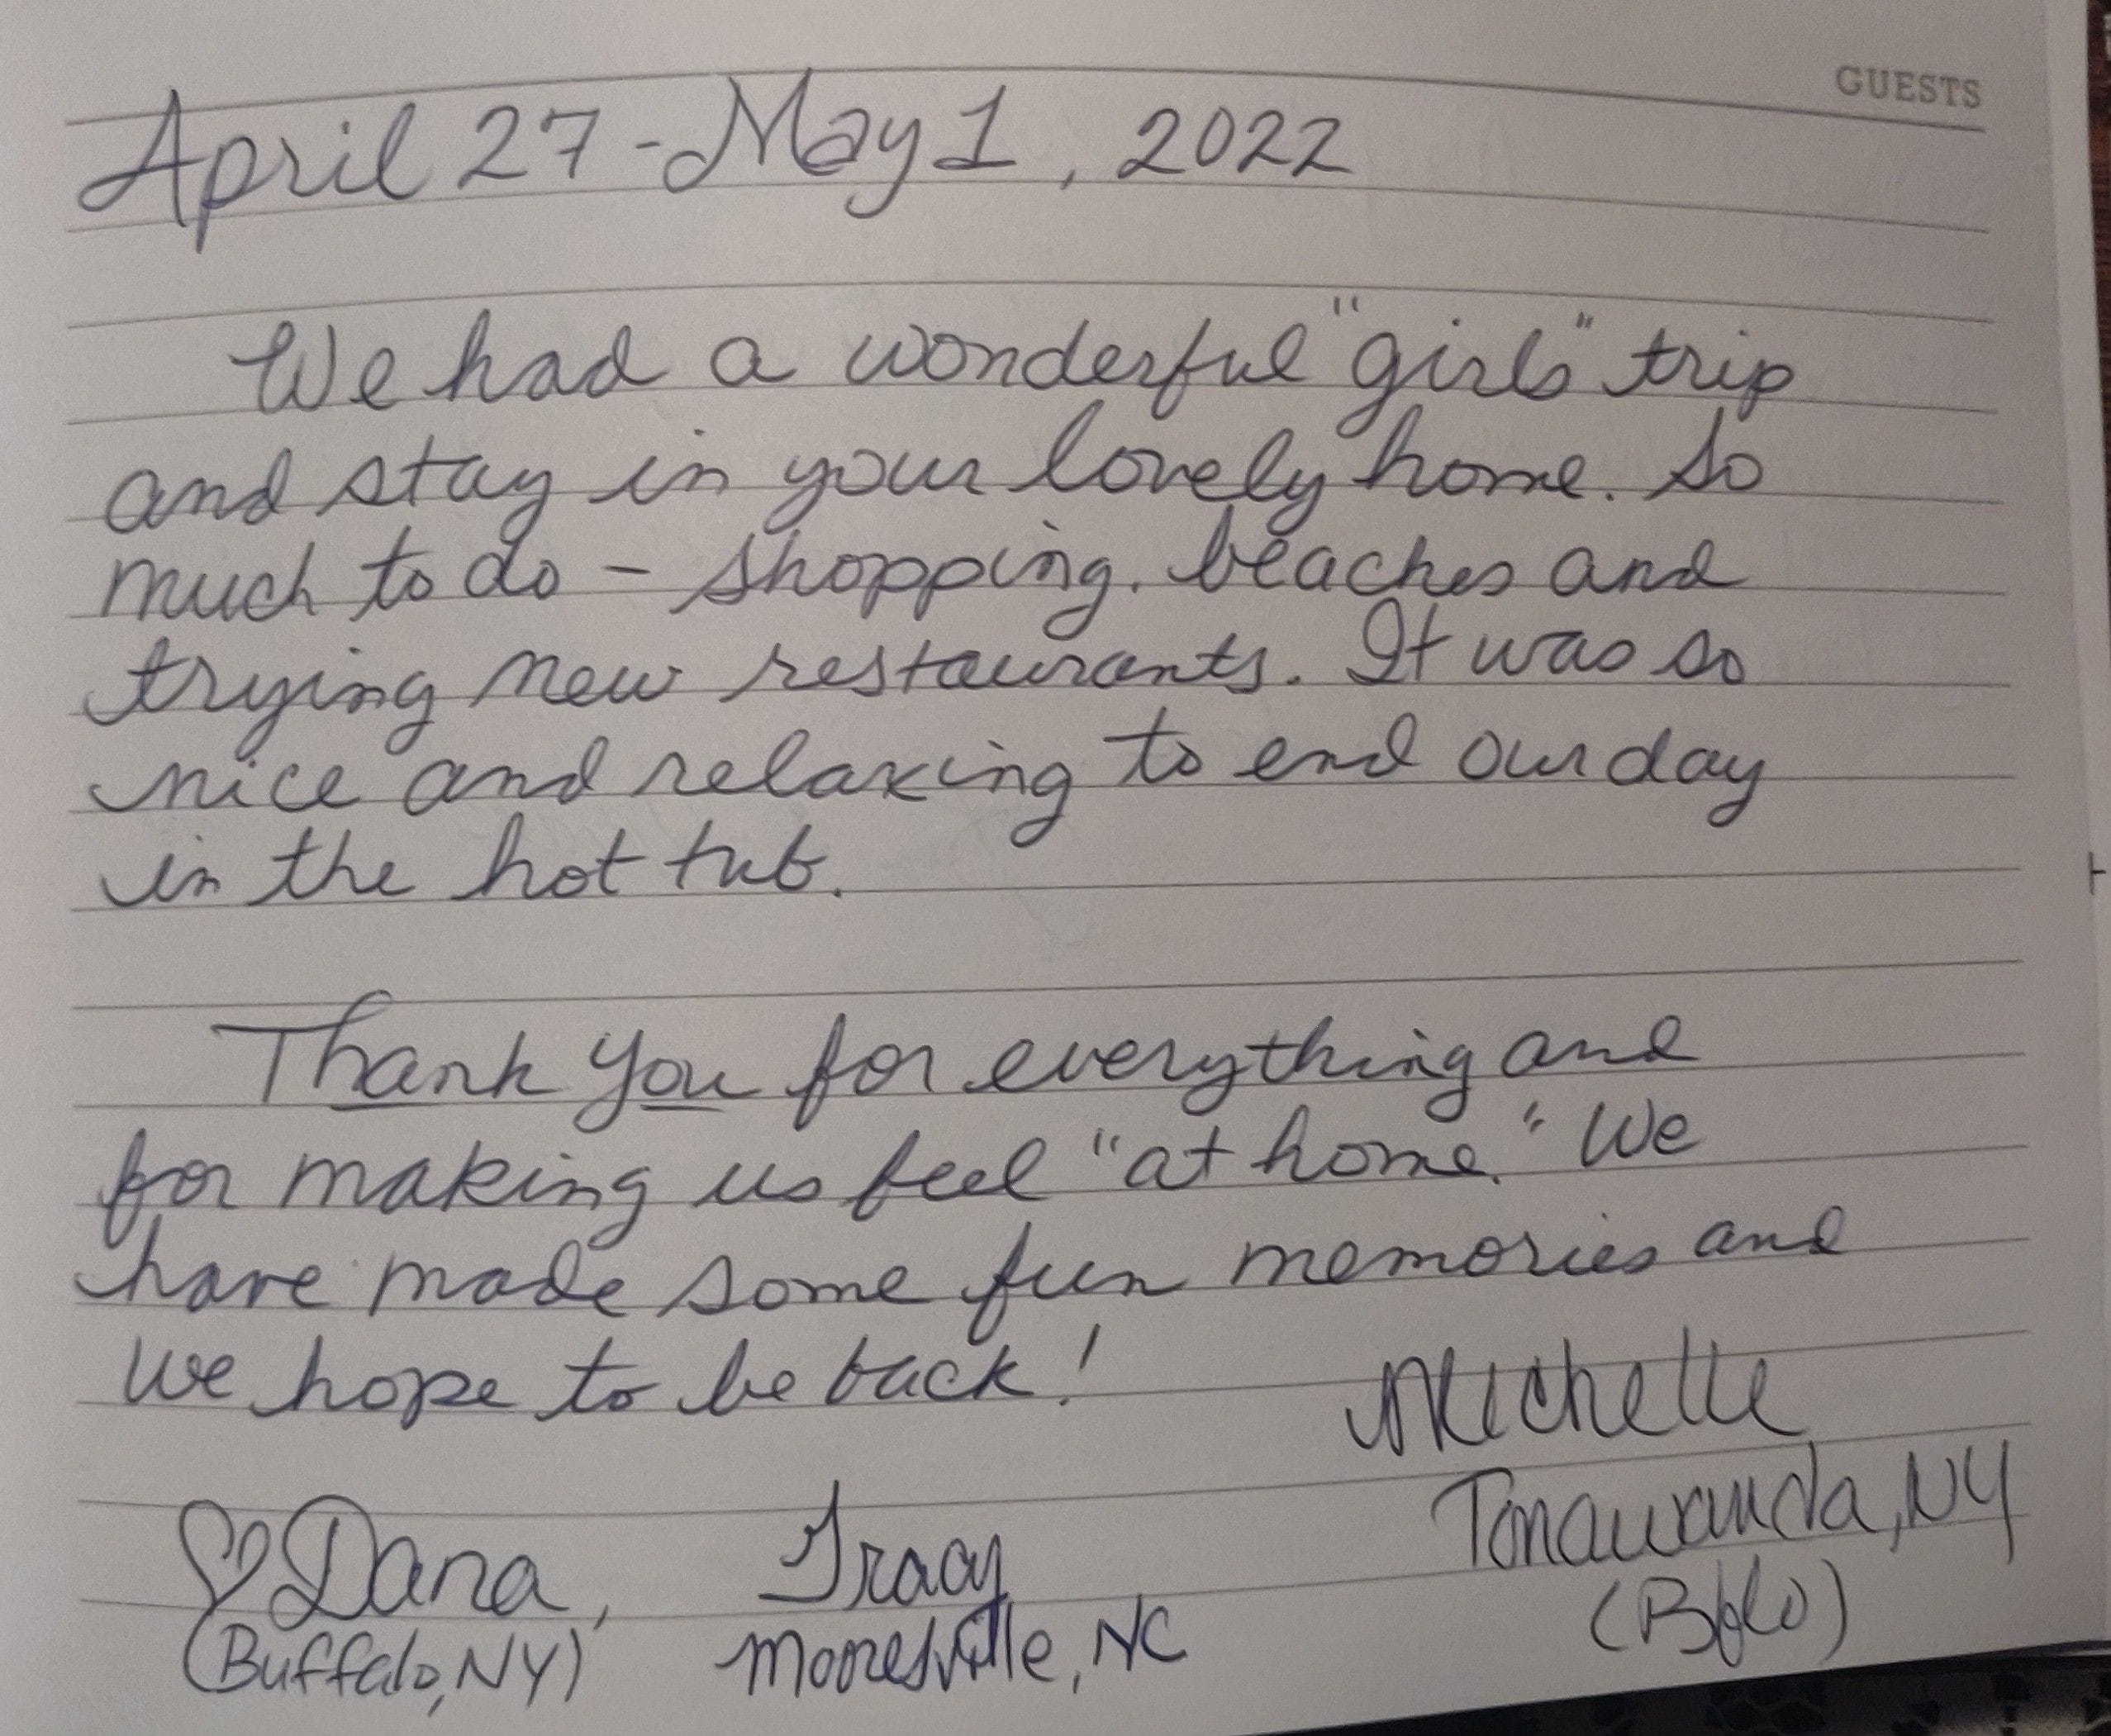 GUESTS
April 27 - May 1, 2022
We had a wonderful "girls" trip
and stay in your lovely home. So
much to do - shopping, beaches and
trying new restaurants. It was so
nice and relaxing to end our day
in the hot tub.
Thank you for everything and
for making us feel "at home." We
have made some fun memories and
we hope to be back!
Michelle
Tonawanda, NY
(Bflo)
♡ Dana,
(Buffalo, NY)
Tracy
Mooresville, NC